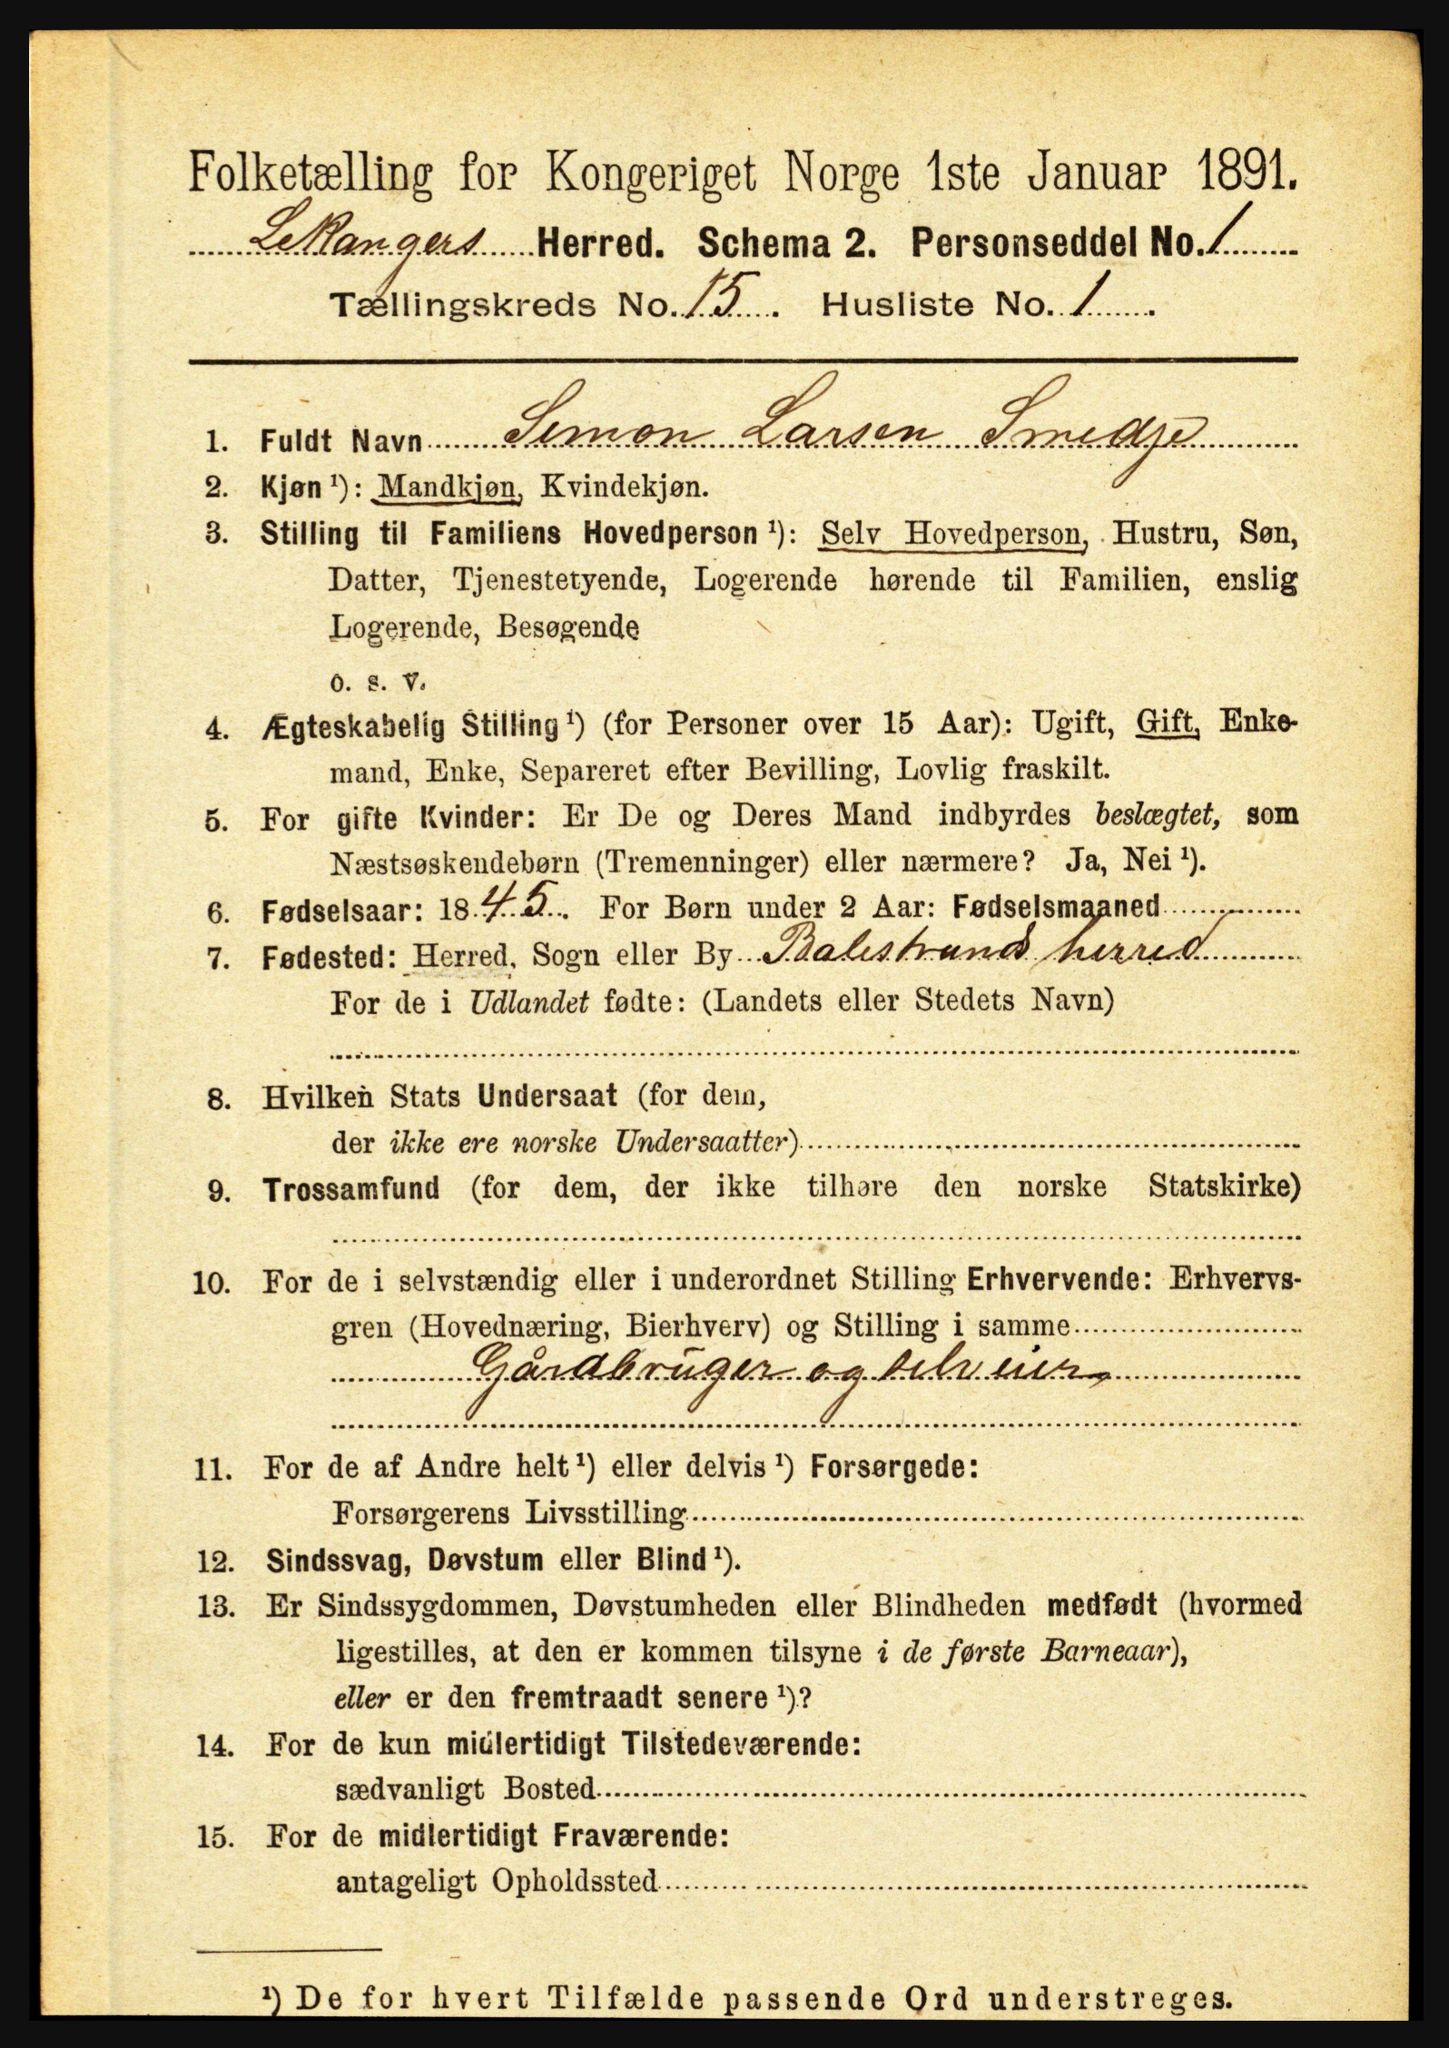 Folketælling for Kongeriget Norge 1ste Januar 1891.
Lekangers Herred. Schema 2. Personseddel No. 1
Tællingskreds No. 15. Husliste No. 1.
1. Fuldt Navn Simon Larsen Smedje
2. Kjøn ¹): Mandkjøn, Kvindekjøn.
3. Stilling til Familiens Hovedperson ¹): Selv Hovedperson, Hustru, Søn,
Datter, Tjenestetyende, Logerende hørende til Familien, enslig
Logerende, Besøgende
o. s. v.
4. Ægteskabelig Stilling ¹) (for Personer over 15 Aar): Ugift, Gift, Enke-
mand, Enke, Separeret efter Bevilling, Lovlig fraskilt.
5. For gifte Kvinder: Er De og Deres Mand indbyrdes beslægtet, som
Næstsøskendebørn (Tremenninger) eller nærmere? Ja, Nei ¹).
6. Fødselsaar: 1845. For Børn under 2 Aar: Fødselsmaaned
7. Fødested: Herred, Sogn eller By Balestrands herred
For de i Udlandet fødte: (Landets eller Stedets Navn)
8. Hvilken Stats Undersaat (for dem,
der ikke ere norske Undersaatter)
9. Trossamfund (for dem, der ikke tilhøre den norske Statskirke)
10. For de i selvstændig eller i underordnet Stilling Erhvervende: Erhvervs-
gren (Hovednæring, Bierhverv) og Stilling i samme
Gårdbruger og selveier
11. For de af Andre helt ¹) eller delvis ¹) Forsørgede:
Forsørgerens Livsstilling
12. Sindssvag, Døvstum eller Blind ¹).
13. Er Sindssygdommen, Døvstumheden eller Blindheden medfødt (hvormed
ligestilles, at den er kommen tilsyne i de første Barneaar),
eller er den fremtraadt senere ¹)?
14. For de kun midlertidigt Tilstedeværende:
sædvanligt Bosted
15. For de midlertidigt Fraværende:
antageligt Opholdssted
¹) De for hvert Tilfælde passende Ord understreges.